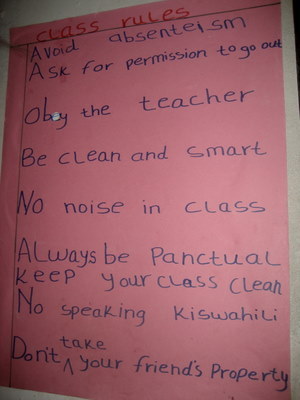 class rules
Avoid absenteism
Ask for permission to go out
Obey the teacher
Be clean and smart
No noise in class
Always be Panctual
keep your class clean
No speaking kiswahili
Don't take your friend's Property